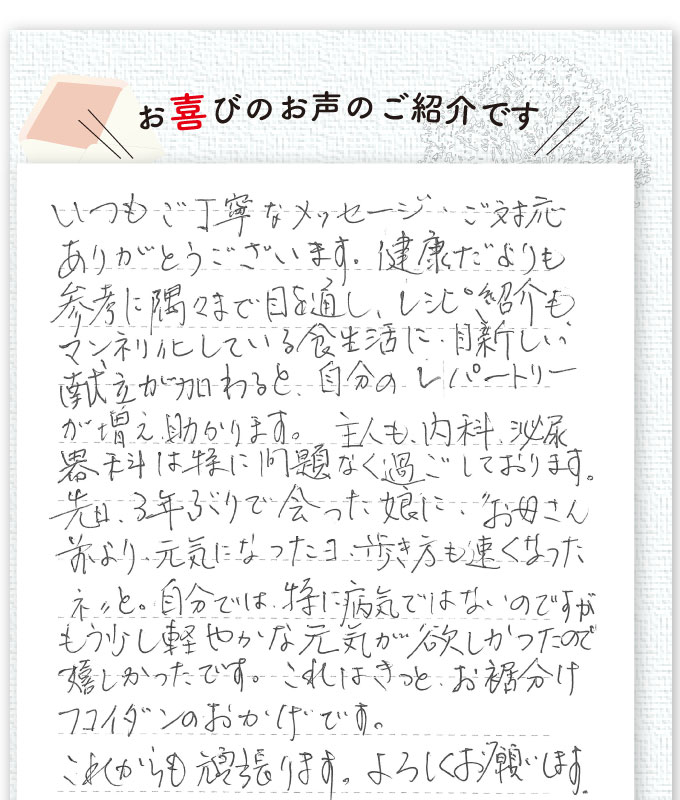 お喜びのお声のご紹介です
いつもご丁寧なメッセージ、ご対応
ありがとうございます。健康だよりも
参考に隅々まで目を通し、レシピ紹介も
マンネリ化している食生活に、目新しい
献立が加わると、自分のレパートリー
が増え助かります。主人も、内科、泌尿
器科は特に問題なく過ごしております。
先日、3年ぶりで会った娘に、〝お母さん
前より、元気になったヨ、歩き方も速くなった
ネ〟と。自分では、特に病気ではないのですが
もう少し軽やかな元気が欲しかったので
嬉しかったです。これはきっと、お裾分け
フコイダンのおかげです。
これからも頑張ります。よろしくお願いします。